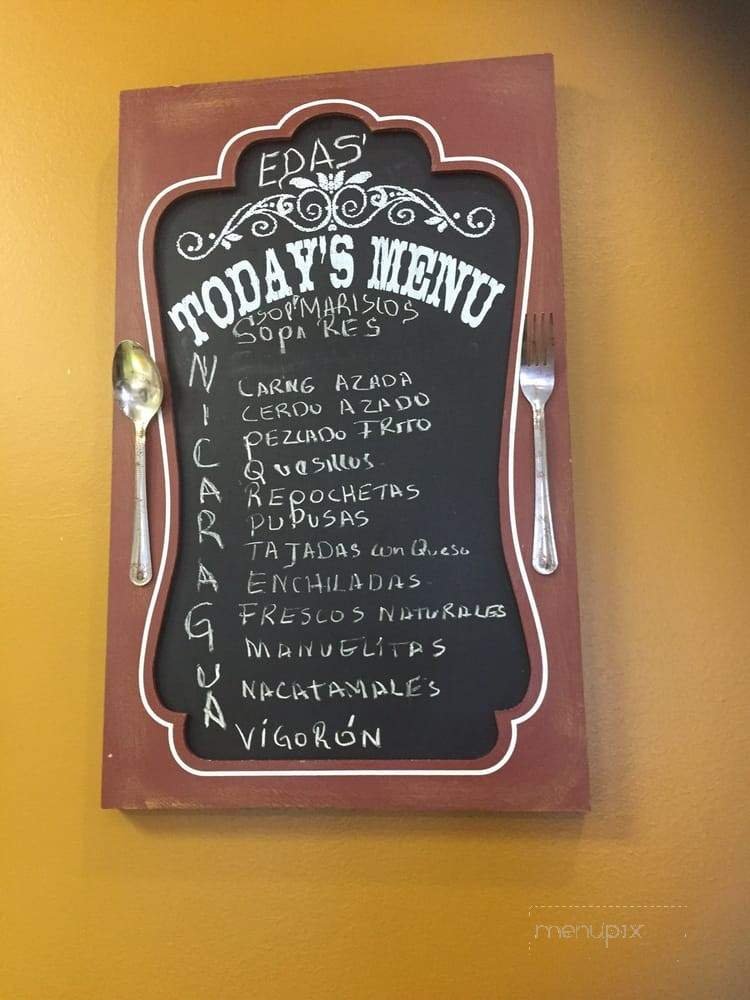 EDAS'
TODAY'S MENU
SOP'MARISCOS
Sopa RES
NICARAGUA
CARNG AZADA
CERDO AZADO
PEZCADO FRITO
Quesillos
REPOCHETAS
PUPUSAS
TAJADAS con Queso
ENCHILADAS
FRESCOS NATURALES
MANUELITAS
NACATAMALES
VIGORÓN
menupix